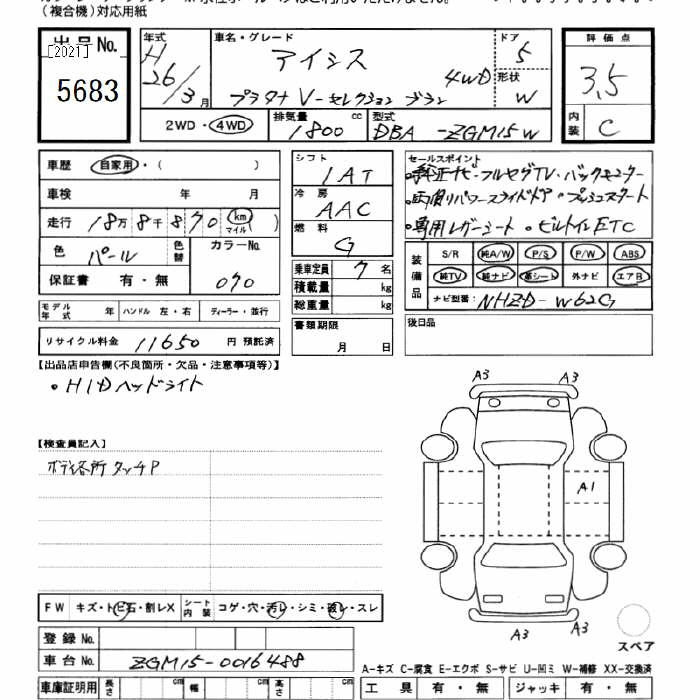 (複合機)対応用紙
出品No.
[2021]
5683
年式
H
26/3月
車名・グレード
アイシス
4WD
プラタナ V-セレクション
ドア
5
形状
W
評価点
3.5
内装
C
2WD・4WD
排気量
1800 cc
型式
DBA -ZGM15W
車歴 自家用・( )
車検 年 月
走行 18万8千870 km マイル ( )
色 パール 色替 カラーNo.
070
保証書 有・無
モデル年式 年 ハンドル 左・右 ディーラー・並行
リサイクル料金 11650 円 預託済
シフト
1AT
冷房
AAC
燃料
G
乗車定員 7 名
積載量 kg
総重量 kg
書類期限
月 日
セールスポイント
・純正ナビ・フルセグTV・バックモニター
・両側パワースライドドア・プッシュスタート
・専用レザーシート・ビルトインETC
装備品
S/R 純A/W P/S P/W ABS
純TV 純ナビ 革シート 外ナビ エアB
ナビ型番: NHZD-W62G
後日品
【出品店申告欄(不良箇所・欠品・注意事項等)】
・HIDヘッドライト
【検査員記入】
ボディ各所 タッチP
A3 A3
A1
A3 A3
スペア
FW キズ・トビ石・割レX シート内装 コゲ・穴・汚レ・シミ・破レ・スレ
登録No.
車台No. ZGM15-0016488
車庫証明用 長さ cm 幅 cm 高さ cm
A-キズ C-腐食 E-エクボ S-サビ U-凹ミ W-補修 XX-交換済
工具 有・無 ジャッキ 有・無